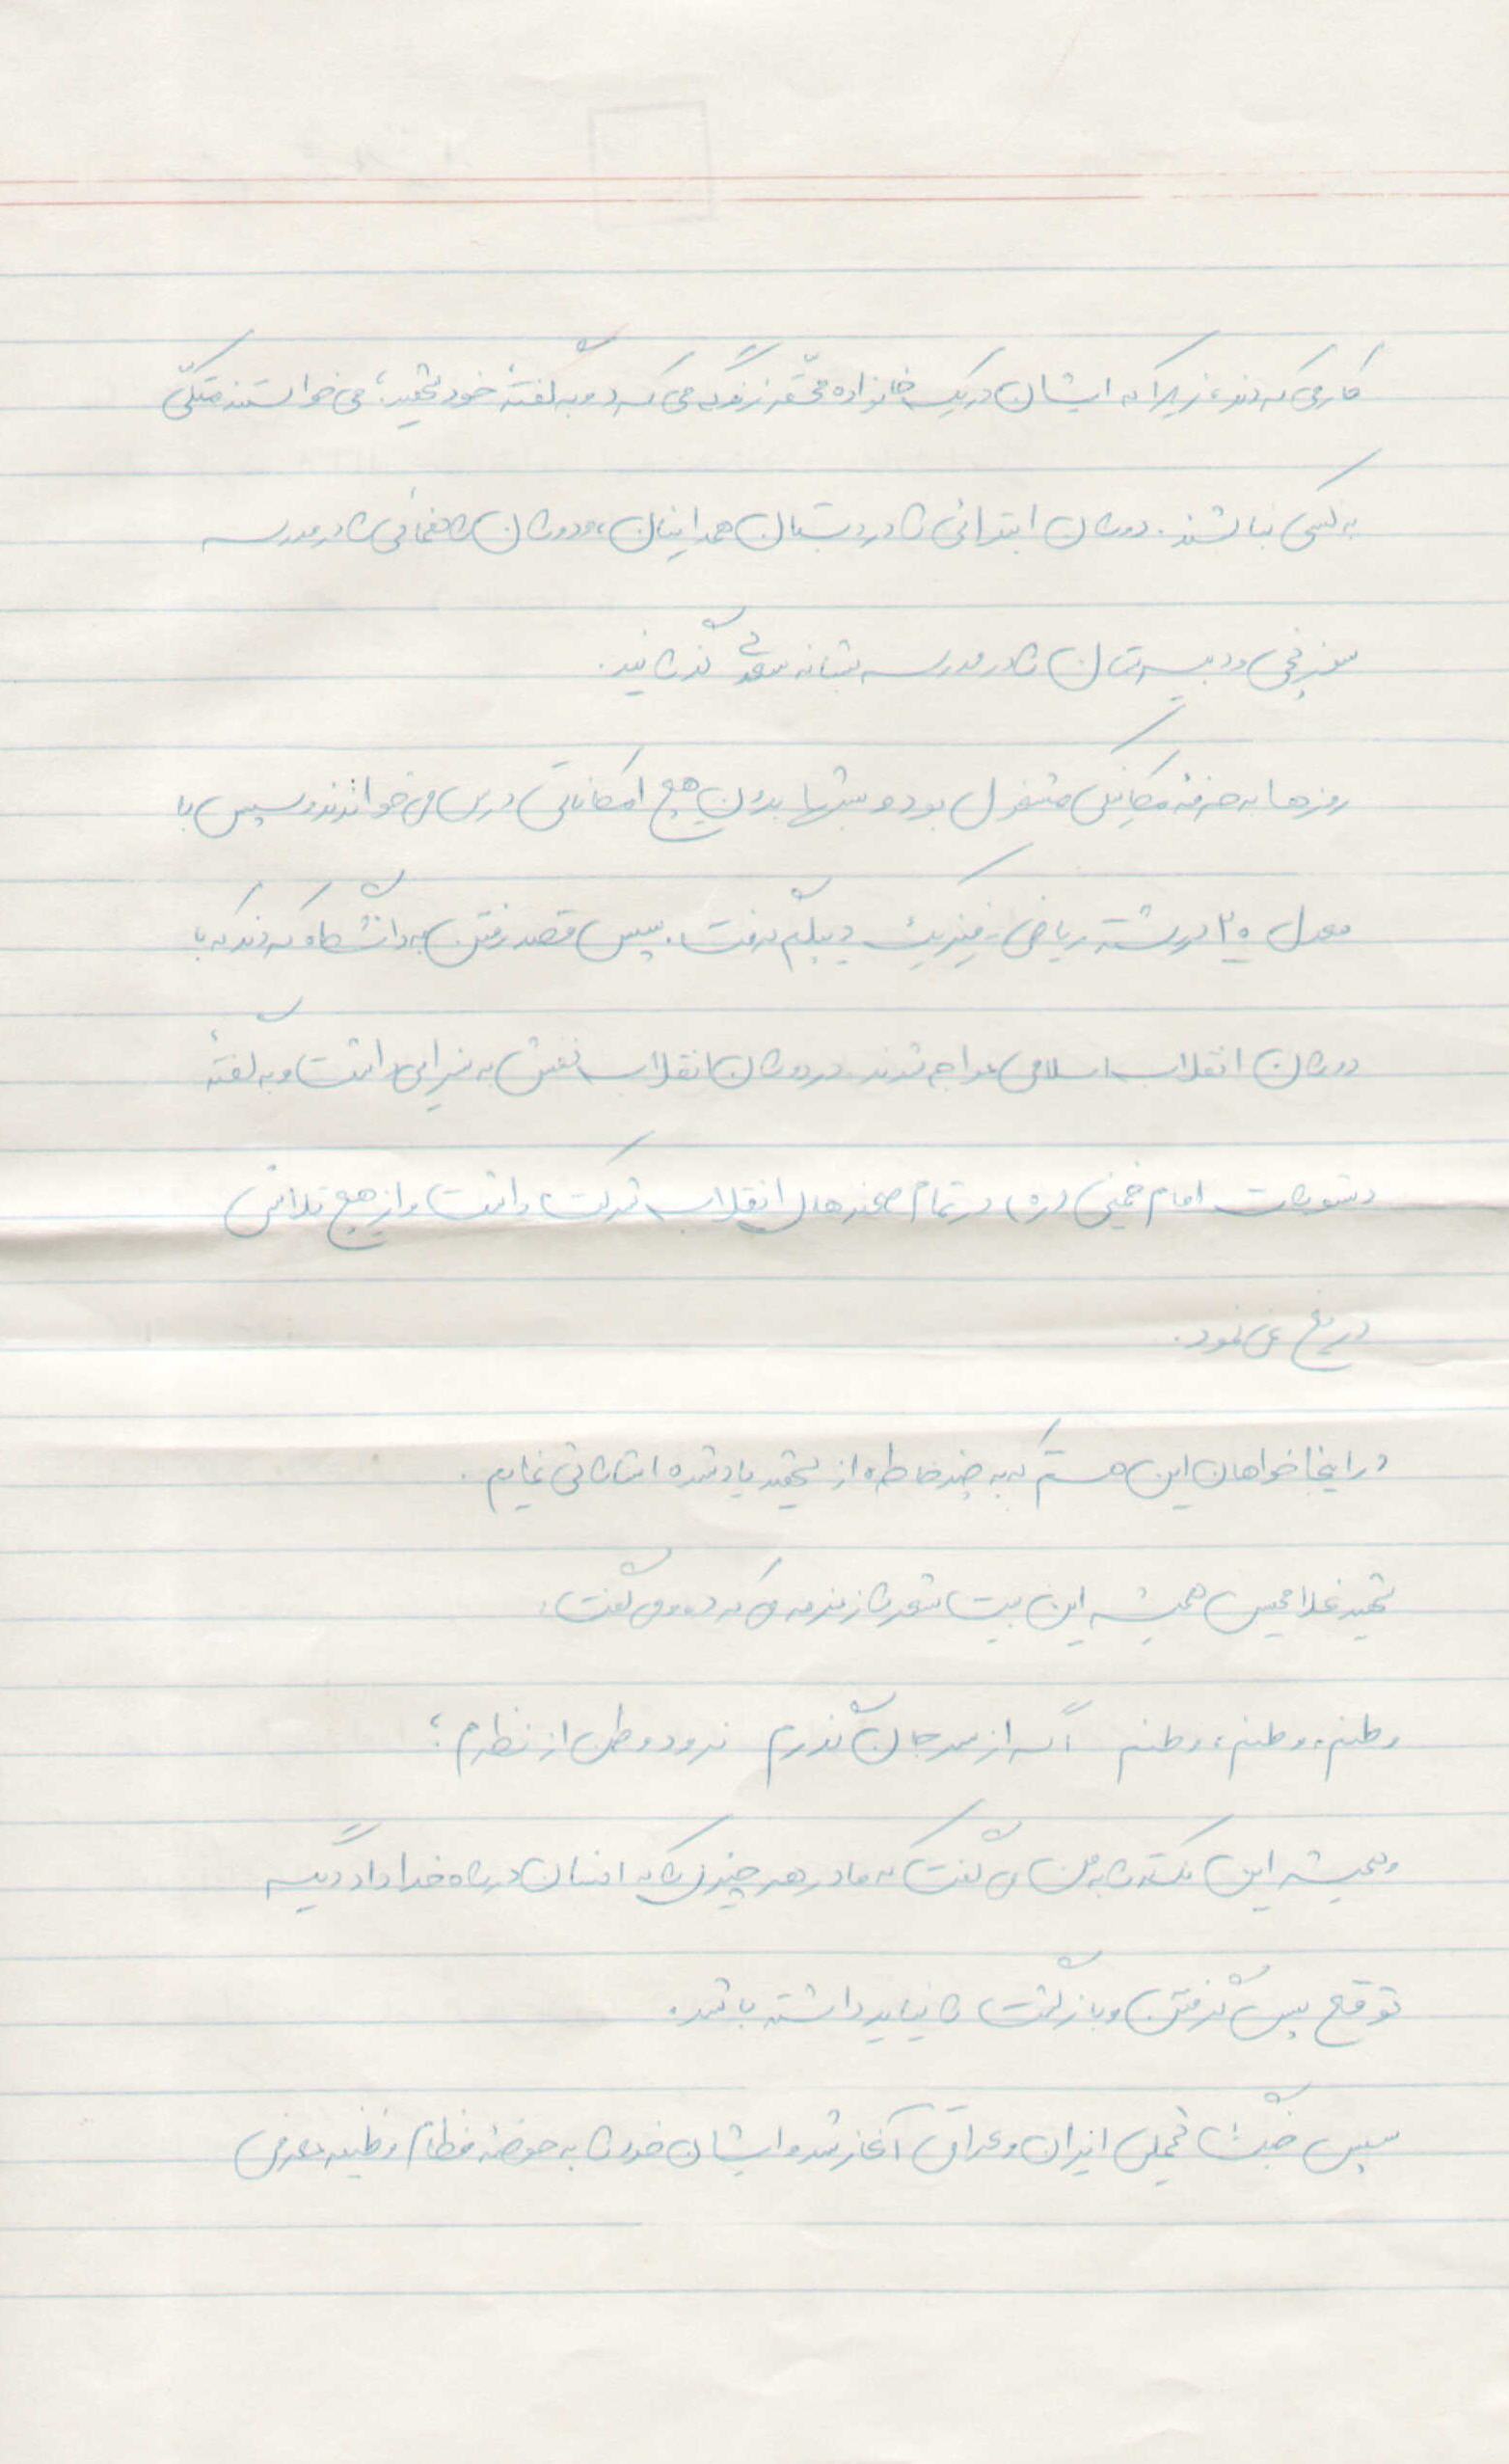 کار می کردند، زیرا که ایشان در یک خانواده محقر زندگی می کرد و به گفتهٔ خود شهید؛ می خواستند متکّی
به کسی نباشند. دوران ابتدائی را در دبستان همدانیان، و دوران راهنمائی را در مدرسه
و دبیرستان را در مدرسه شبانه سعدی گذرانید.
روزها به حرفه مکانیکی مشغول بود و شبها بدون هیچ امکاناتی درس می خواندند و سپس با
معدل ۲۰ در رشته ریاضی - فیزیک دیپلم گرفت. سپس قصد رفتن به دانشگاه کردند که با
دوران انقلاب اسلامی مواجه شدند. در دوران انقلاب نقش به سزایی داشت و به گفتهٔ
دستورات امام خمینی (ره) در تمام صحنه های انقلاب شرکت داشت و از هیچ تلاشی
دریغ نمی نمود.
در اینجا خواهان این هستم که به چند خاطره از شهید یاد شده اشاراتی نمایم.
شهید غلامحسین همیشه این بیت شعر را زمزمه می کرد و می گفت:
وطنم، وطنم، وطنم اگر از سر جان گذرم نرود وطن از نظرم؛
و همیشه این نکته را به من می گفت که مادر هر چیزی را که انسان در راه خدا داد دیگر
توقع پس گرفتن و بازگشت را نباید داشته باشد.
سپس جنگ تحمیلی ایران و عراق آغاز شد و ایشان خود را به حوضهٔ نظام وظیفه معرفی